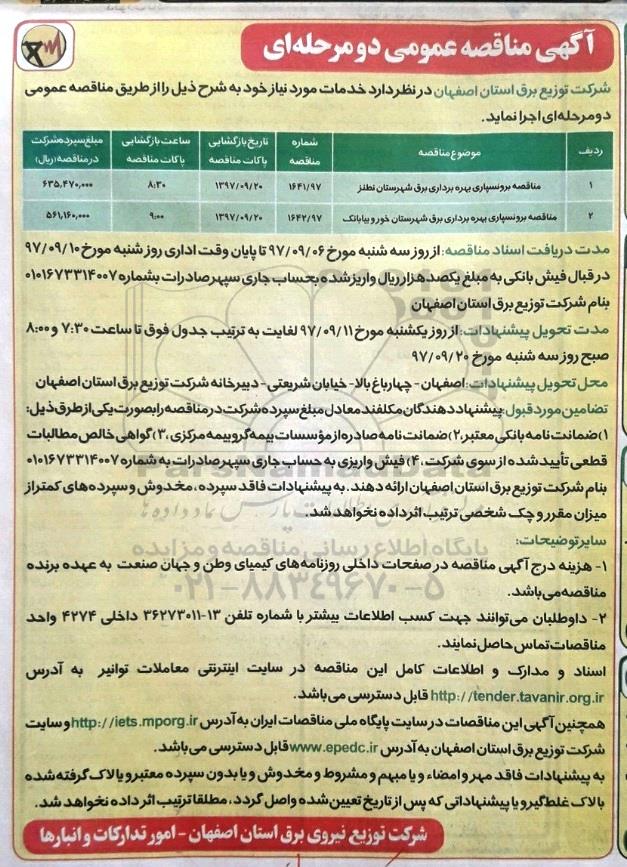 آگهی مناقصه عمومی دو مرحله‌ای
شرکت توزیع برق استان اصفهان در نظر دارد خدمات مورد نیاز خود به شرح ذیل را از طریق مناقصه عمومی
دو مرحله‌ای اجرا نماید.
ردیف موضوع مناقصه شماره مناقصه تاریخ بازگشایی پاکات مناقصه ساعت بازگشایی پاکات مناقصه مبلغ سپرده شرکت در مناقصه (ریال)
۱ مناقصه برونسپاری بهره برداری برق شهرستان نطنز ۱۶۴۱/۹۷ ۱۳۹۷/۰۹/۲۰ ۸:۳۰ ۶۳۵,۴۷۰,۰۰۰
۲ مناقصه برونسپاری بهره برداری برق شهرستان خور و بیابانک ۱۶۴۲/۹۷ ۱۳۹۷/۰۹/۲۰ ۹:۰۰ ۵۶۱,۱۶۰,۰۰۰
مدت دریافت اسناد مناقصه: از روز سه شنبه مورخ ۹۷/۰۹/۰۶ تا پایان وقت اداری روز شنبه مورخ ۹۷/۰۹/۱۰
در قبال فیش بانکی به مبلغ یکصد هزار ریال واریز شده بحساب جاری سپهر صادرات بشماره ۰۱۰۱۶۷۳۳۱۴۰۰۷
بنام شرکت توزیع برق استان اصفهان
مدت تحویل پیشنهادات: از روز یکشنبه مورخ ۹۷/۰۹/۱۱ لغایت به ترتیب جدول فوق تا ساعت ۷:۳۰ و ۸:۰۰
صبح روز سه شنبه مورخ ۹۷/۰۹/۲۰
محل تحویل پیشنهادات: اصفهان - چهارباغ بالا - خیابان شریعتی - دبیرخانه شرکت توزیع برق استان اصفهان
تضامین مورد قبول: پیشنهاد دهندگان مکلفند معادل مبلغ سپرده شرکت در مناقصه را بصورت یکی از طرق ذیل:
۱) ضمانت نامه بانکی معتبر، ۲) ضمانت نامه صادره از مؤسسات بیمه گر و بیمه مرکزی، ۳) گواهی خالص مطالبات
قطعی تأیید شده از سوی شرکت، ۴) فیش واریزی به حساب جاری سپهر صادرات به شماره ۰۱۰۱۶۷۳۳۱۴۰۰۷
بنام شرکت توزیع برق استان اصفهان ارائه دهند. به پیشنهادات فاقد سپرده، مخدوش و سپرده های کمتر از
میزان مقرر و چک شخصی ترتیب اثر داده نخواهد شد.
سایر توضیحات:
پایگاه اطلاع رسانی مناقصه و مزایده
۱- هزینه درج آگهی مناقصه در صفحات داخلی روزنامه های کیمیای وطن و جهان صنعت به عهده برنده
مناقصه می‌باشد.
۰۲۱-۸۸۳۴۹۶۷۰-۵
۲- داوطلبان می‌توانند جهت کسب اطلاعات بیشتر با شماره تلفن ۱۳-۳۶۲۷۳۰۱۱ داخلی ۴۲۷۴ واحد
مناقصات تماس حاصل نمایند.
اسناد و مدارک و اطلاعات کامل این مناقصه در سایت اینترنتی معاملات توانیر به آدرس
http://tender.tavanir.org.ir قابل دسترسی می باشد.
همچنین آگهی این مناقصات در سایت پایگاه ملی مناقصات ایران به آدرس http://iets.mporg.ir و سایت
شرکت توزیع برق استان اصفهان به آدرس www.epedc.ir قابل دسترسی می باشد.
به پیشنهادات فاقد مهر و امضاء و یا مبهم و مشروط و مخدوش و یا بدون سپرده معتبر و یا لاک گرفته شده
با لاک غلط گیر و یا پیشنهاداتی که پس از تاریخ تعیین شده واصل گردد، مطلقا ترتیب اثر داده نخواهد شد.
شرکت توزیع نیروی برق استان اصفهان - امور تدارکات و انبارها